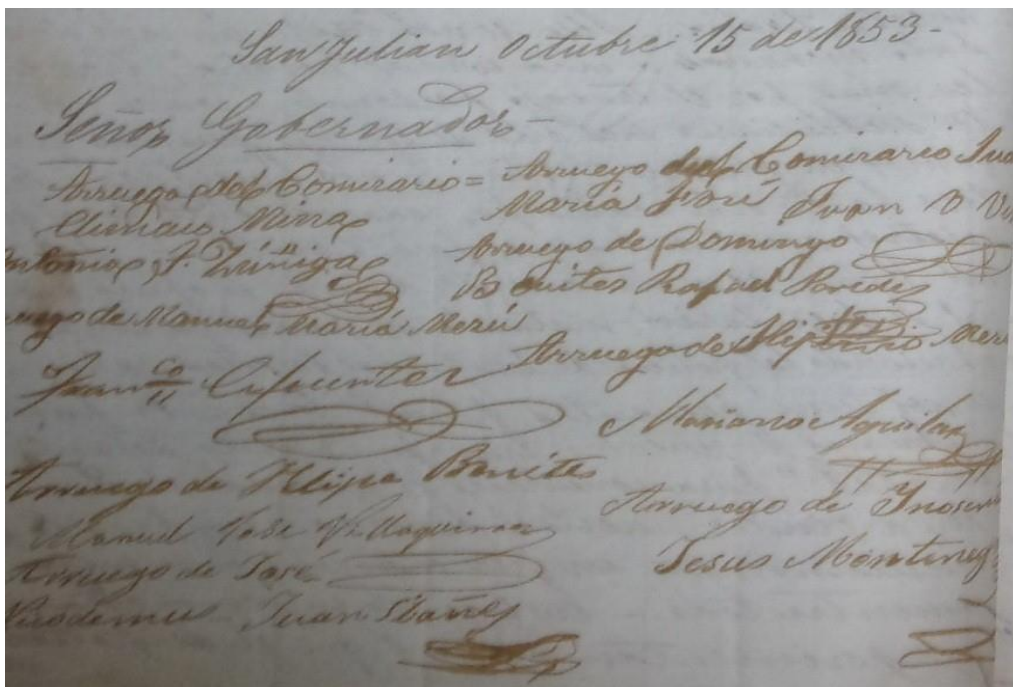 San Julian Octubre 15 de 1853-
Señor Gobernador-
Arruego del Comirario=
Climaco Mina
Antonio J. Zúñiga
de Manuel Maria Merú
Franco Cifuentes
Arruego de Felipe Benites
Manuel José Villaquiran
Arruego de José
Nicodemus Juan Ibañes
Arruego del Comirario
Maria José Juan
Arruego de Domingo
Benites Rafael Paredes
Arruego de
Mariano Aguilar
Arruego de
Jesus